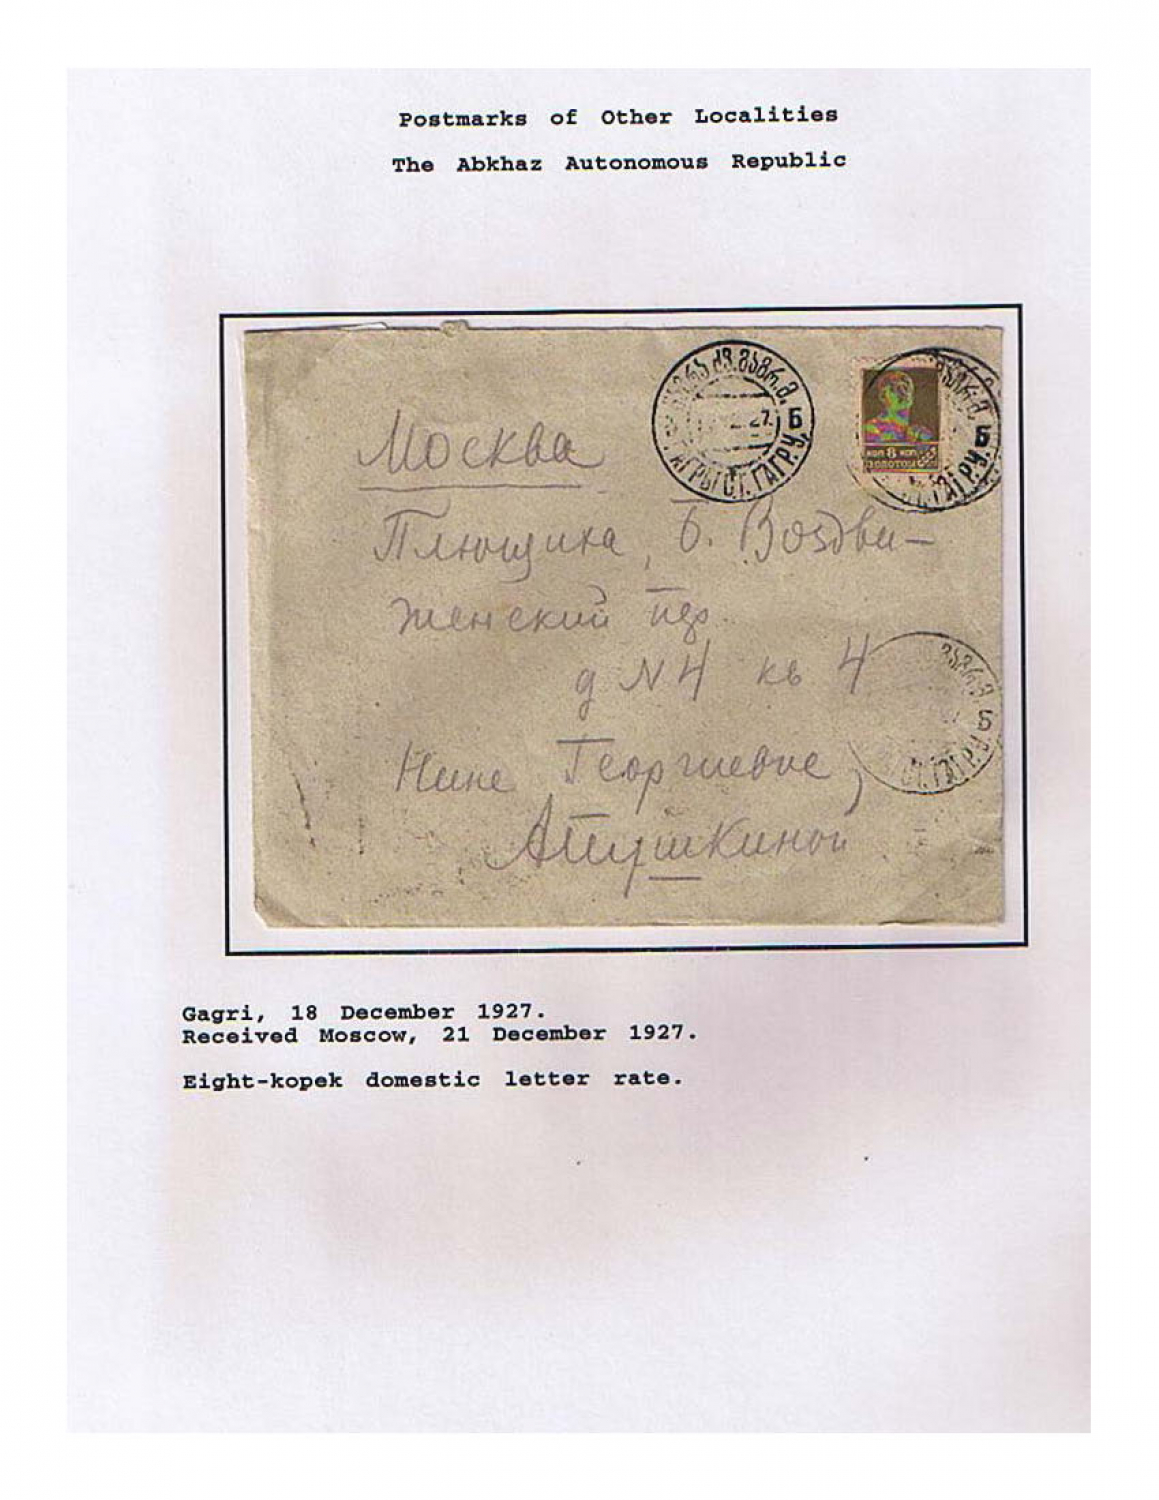 Postmarks of Other Localities
The Abkhaz Autonomous Republic
Б
27
ГАГРЫ С.Г. ГАГР.У.
КОП 8 КОП
ЗОЛОТОМ
Б
Москва
Плющиха, Б. Воздви-
женский пер.
д N 4 кв 4
Б
Нине Георгиевне
Япушкиной
Gagri, 18 December 1927.
Received Moscow, 21 December 1927.
Eight-kopek domestic letter rate.